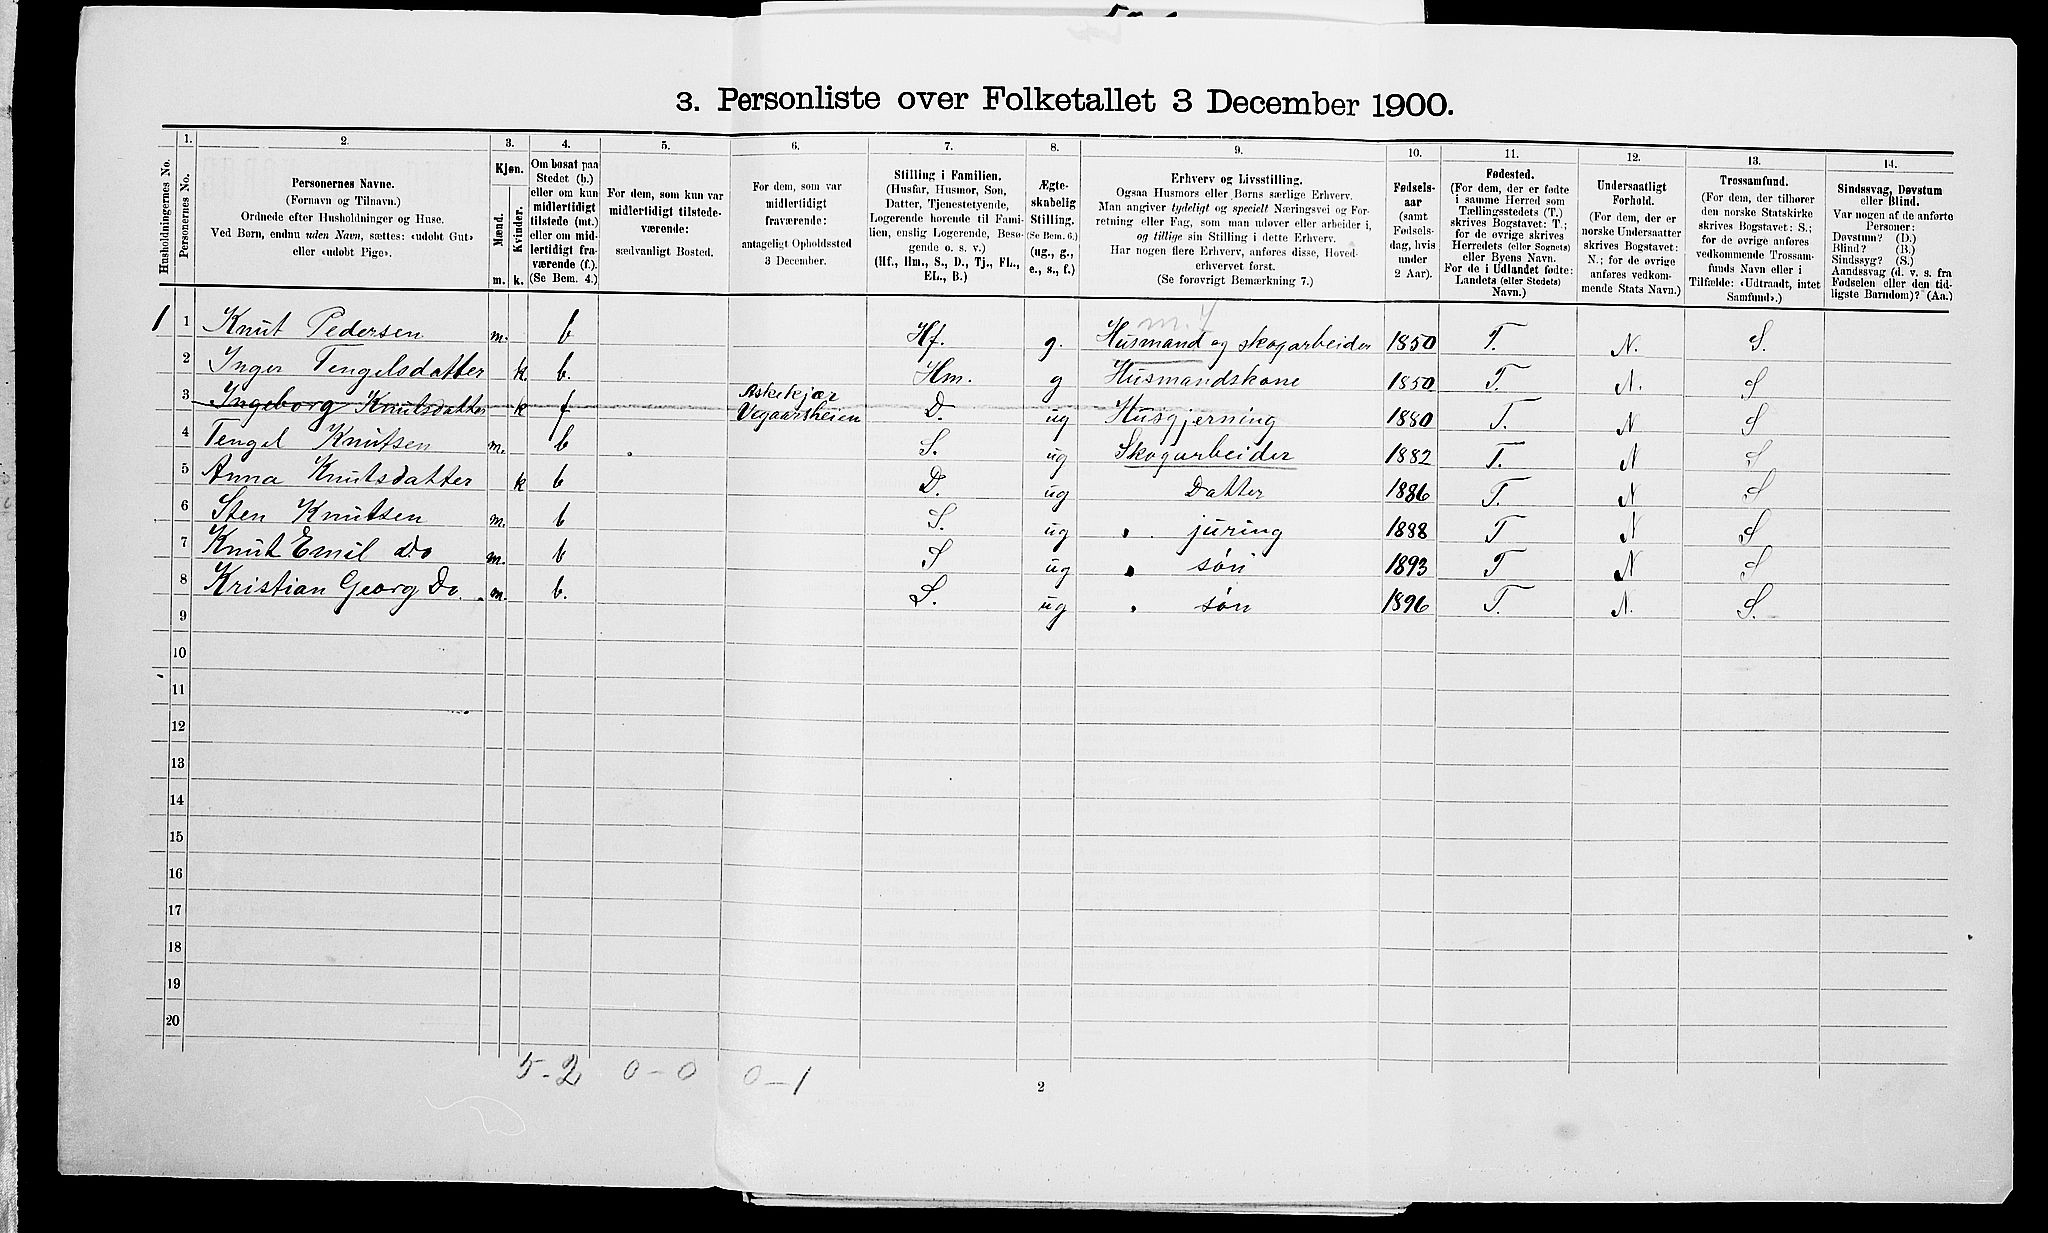 3. Personliste over Folketallet 3 December 1900.
1. 2. 3. 4. 5. 6. 7. 8. 9. 10. 11. 12. 13. 14.
Husholdningernes No.
Personernes No.
Personernes Navne.
(Fornavn og Tilnavn.)
Ordnede efter Husholdninger og Huse.
Ved Børn, endnu uden Navn, sættes: «udøbt Gut»
eller «udøbt Pige».
Kjøn.
Mænd.
Kvinder.
m. k.
Om bosat paa
Stedet (b.)
eller om kun
midlertidigt
tilstede (mt.)
eller om mid-
lertidigt fra-
værende (f.)
(Se Bem. 4.)
For dem, som kun var
midlertidigt tilstede-
værende:
sædvanligt Bosted.
For dem, som var
midlertidigt
fraværende:
antageligt Opholdssted
3 December.
Stilling i Familien.
(Husfar, Husmor, Søn,
Datter, Tjenestetyende,
Logerende hørende til Fami-
lien, enslig Logerende, Besø-
gende o. s. v.)
(Hf., Hm., S., D., Tj., FL.,
EL., B.)
Ægte-
skabelig
Stilling.
(Se Bem. 6.)
(ug., g.,
e., s., f.)
Erhverv og Livsstilling.
Ogsaa Husmors eller Børns særlige Erhverv.
Man angiver tydeligt og specielt Næringsvei og For-
retning eller Fag, som man udøver eller arbeider i,
og tillige sin Stilling i dette Erhverv.
Har nogen flere Erhverv, anføres disse, Hoved-
erhvervet først.
(Se forøvrigt Bemærkning 7.)
Fødsels-
aar
(samt
Fødsels-
dag, hvis
under
2 Aar).
Fødested.
(For dem, der er fødte
i samme Herred som
Tællingsstedets (T.)
skrives Bogstavet: T.;
for de øvrige skrives
Herredets (eller Sognets)
eller Byens Navn.
For de i Udlandet fødte:
Landets (eller Stedets)
Navn.)
Undersaatligt
Forhold.
(For dem, der er
norske Undersaatter
skrives Bogstavet:
N.; for de øvrige
anføres vedkom-
mende Stats Navn.)
Trossamfund.
(For dem, der tilhører
den norske Statskirke
skrives Bogstavet: S.;
for de øvrige anføres
vedkommende Trossam-
funds Navn eller i
Tilfælde: «Udtraadt, intet
Samfund».)
Sindssvag, Døvstum
eller Blind.
Var nogen af de anførte
Personer:
Døvstum? (D.)
Blind? (B.)
Sindssyg? (S.)
Aandssvag (d. v. s. fra
Fødselen eller den tid-
ligste Barndom)? (Aa.)
1 1 Knut Pedersen m. b Hf. g. Husmand og skogarbeider 1850 T. N. S.
2 Inger Tengelsdatter k. b. Hm. g Husmandskone 1850 T. N. S
3 Ingeborg Knutsdatter k f Askekjær
Vegaarsheien D. ug Husgjerning 1880 T. N S
4 Tengel Knutsen m. b S. ug Skogarbeider 1882 T. N S
5 Anna Knutsdatter k b D. ug Datter 1886 T. N S
6 Sten Knutsen m. b S. ug juring 1888 T N S
7 Knut Emil Do m. b S ug søn 1893 T N S
8 Kristian Georg Do. m. b. S. ug søn 1896 T. N. S.
9
10
11
12
13
14
15
16
17
18
19
20
5-2 0-0 0-1
2